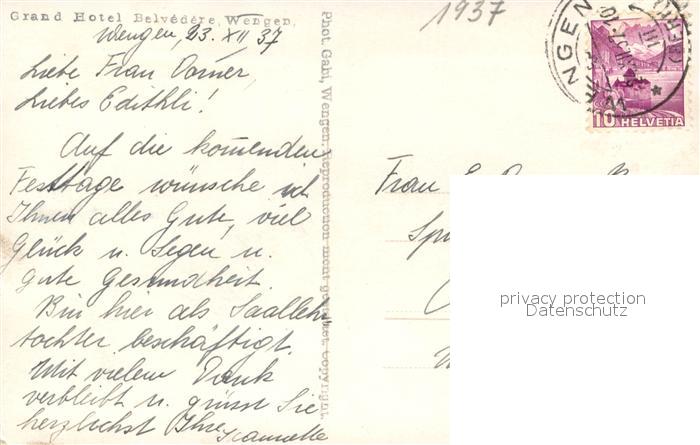 Grand Hotel Belvédère, Wengen.
1937
Wengen, 23. XII 37
Liebe Frau
Liebes Edithli!
Auf die kom̄enden
Festtage wünsche ich
Ihnen alles Gute, viel
Glück u. Segen u.
gute Gesundheit.
Bin hier als Saallehr
tochter beschäftigt.
Mit vielem Dank
verbleibt u. grüsst Sie
herzlichst Ihre
Jeannette
Phot. Gabi, Wengen. Reproduction
Copyright.
Frau E.
WENGEN
10 HELVETIA
privacy protection
Datenschutz